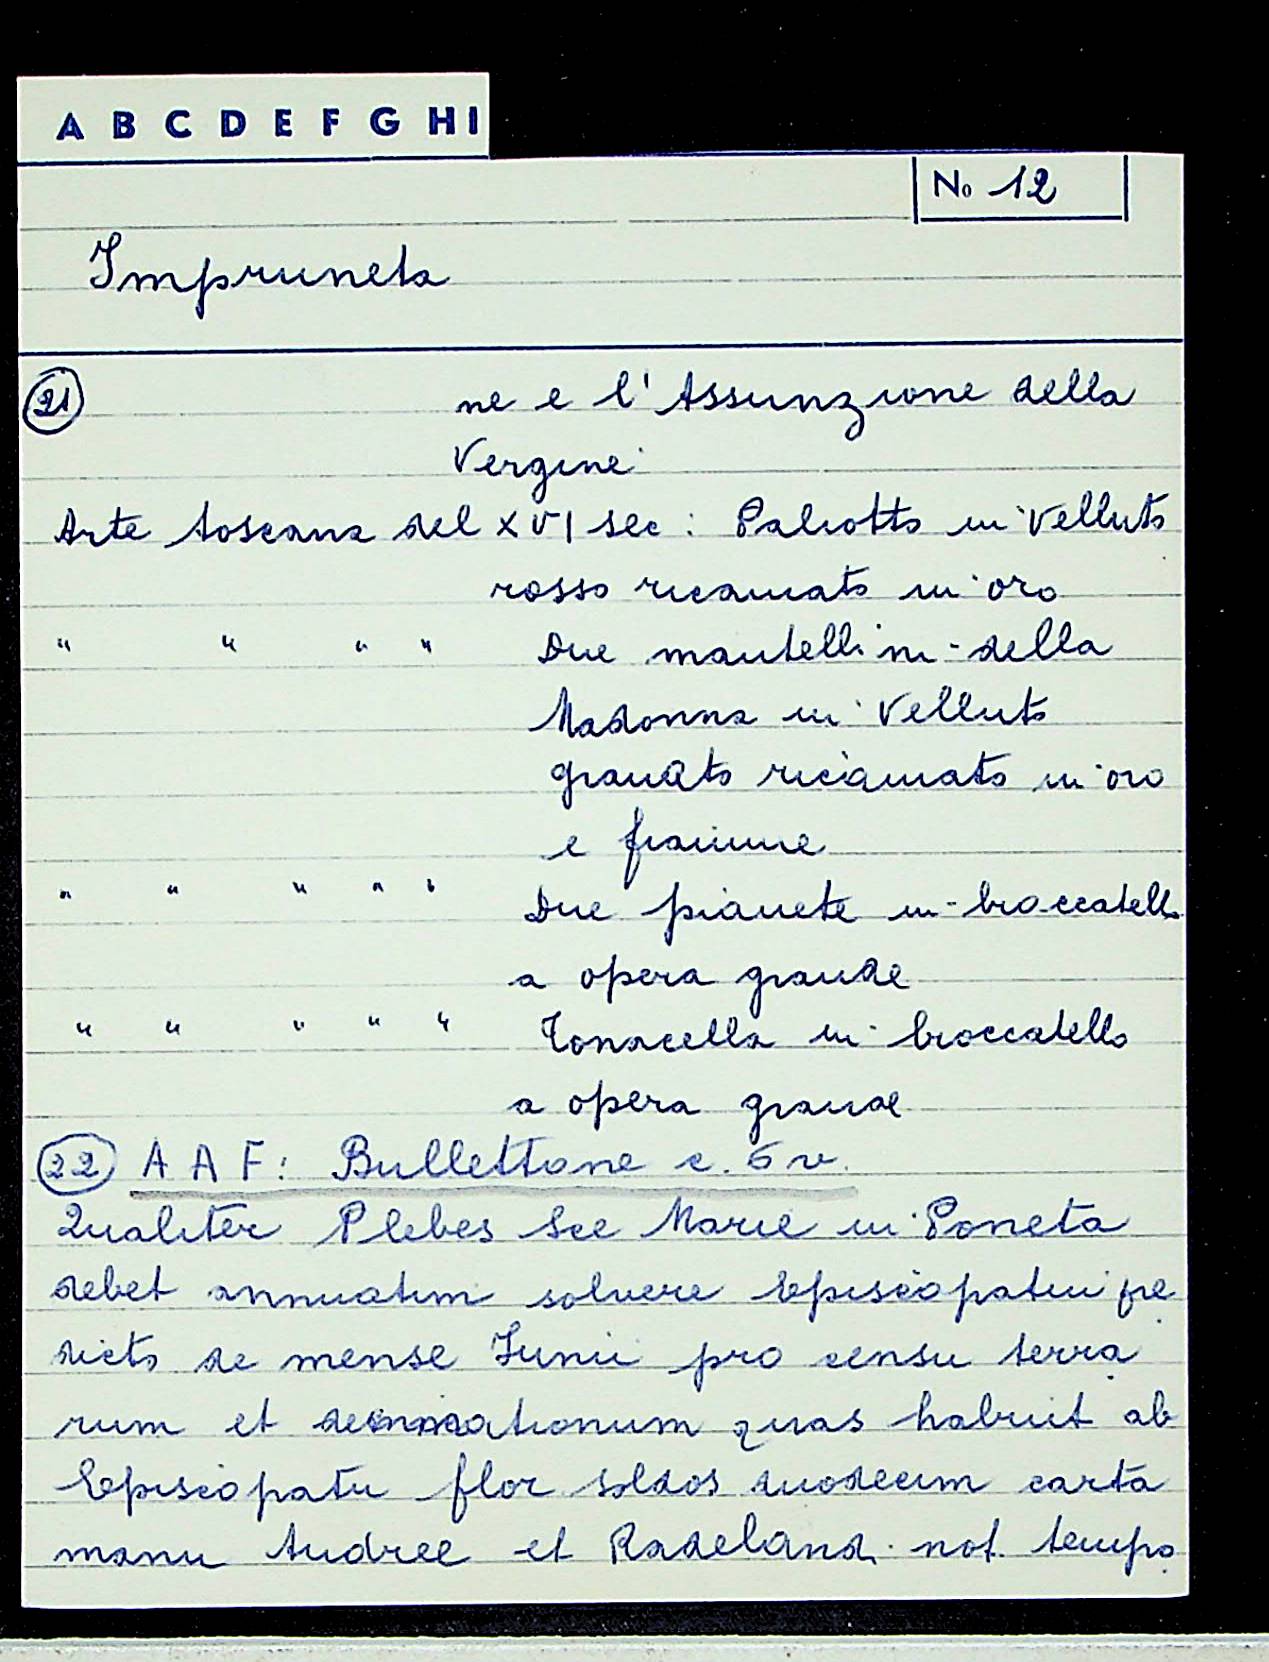 A B C D E F G H I
No 12
Impruneta
21 ne e l'Assunzione della
Vergine
Arte toscana del XVI sec: Paliotto in velluto
rosso ricamato in oro
" " " " Due mantellini della
Madonna in velluto
granato ricamato in oro
e fiamme
" " " " " Due pianete in broccatello
a opera grande
" " " " " Tonacella in broccatello
a opera grande
22 A A F: Bullettone c. 6 v.
Qualiter Plebes Sce Marie in Poneta
debet annuatim solvere Episcopatui pre
dicto de mense Junii pro censu terra
rum et quas habuit ab
Episcopatu flor soldos duodecim carta
manu Andree et not. tempo